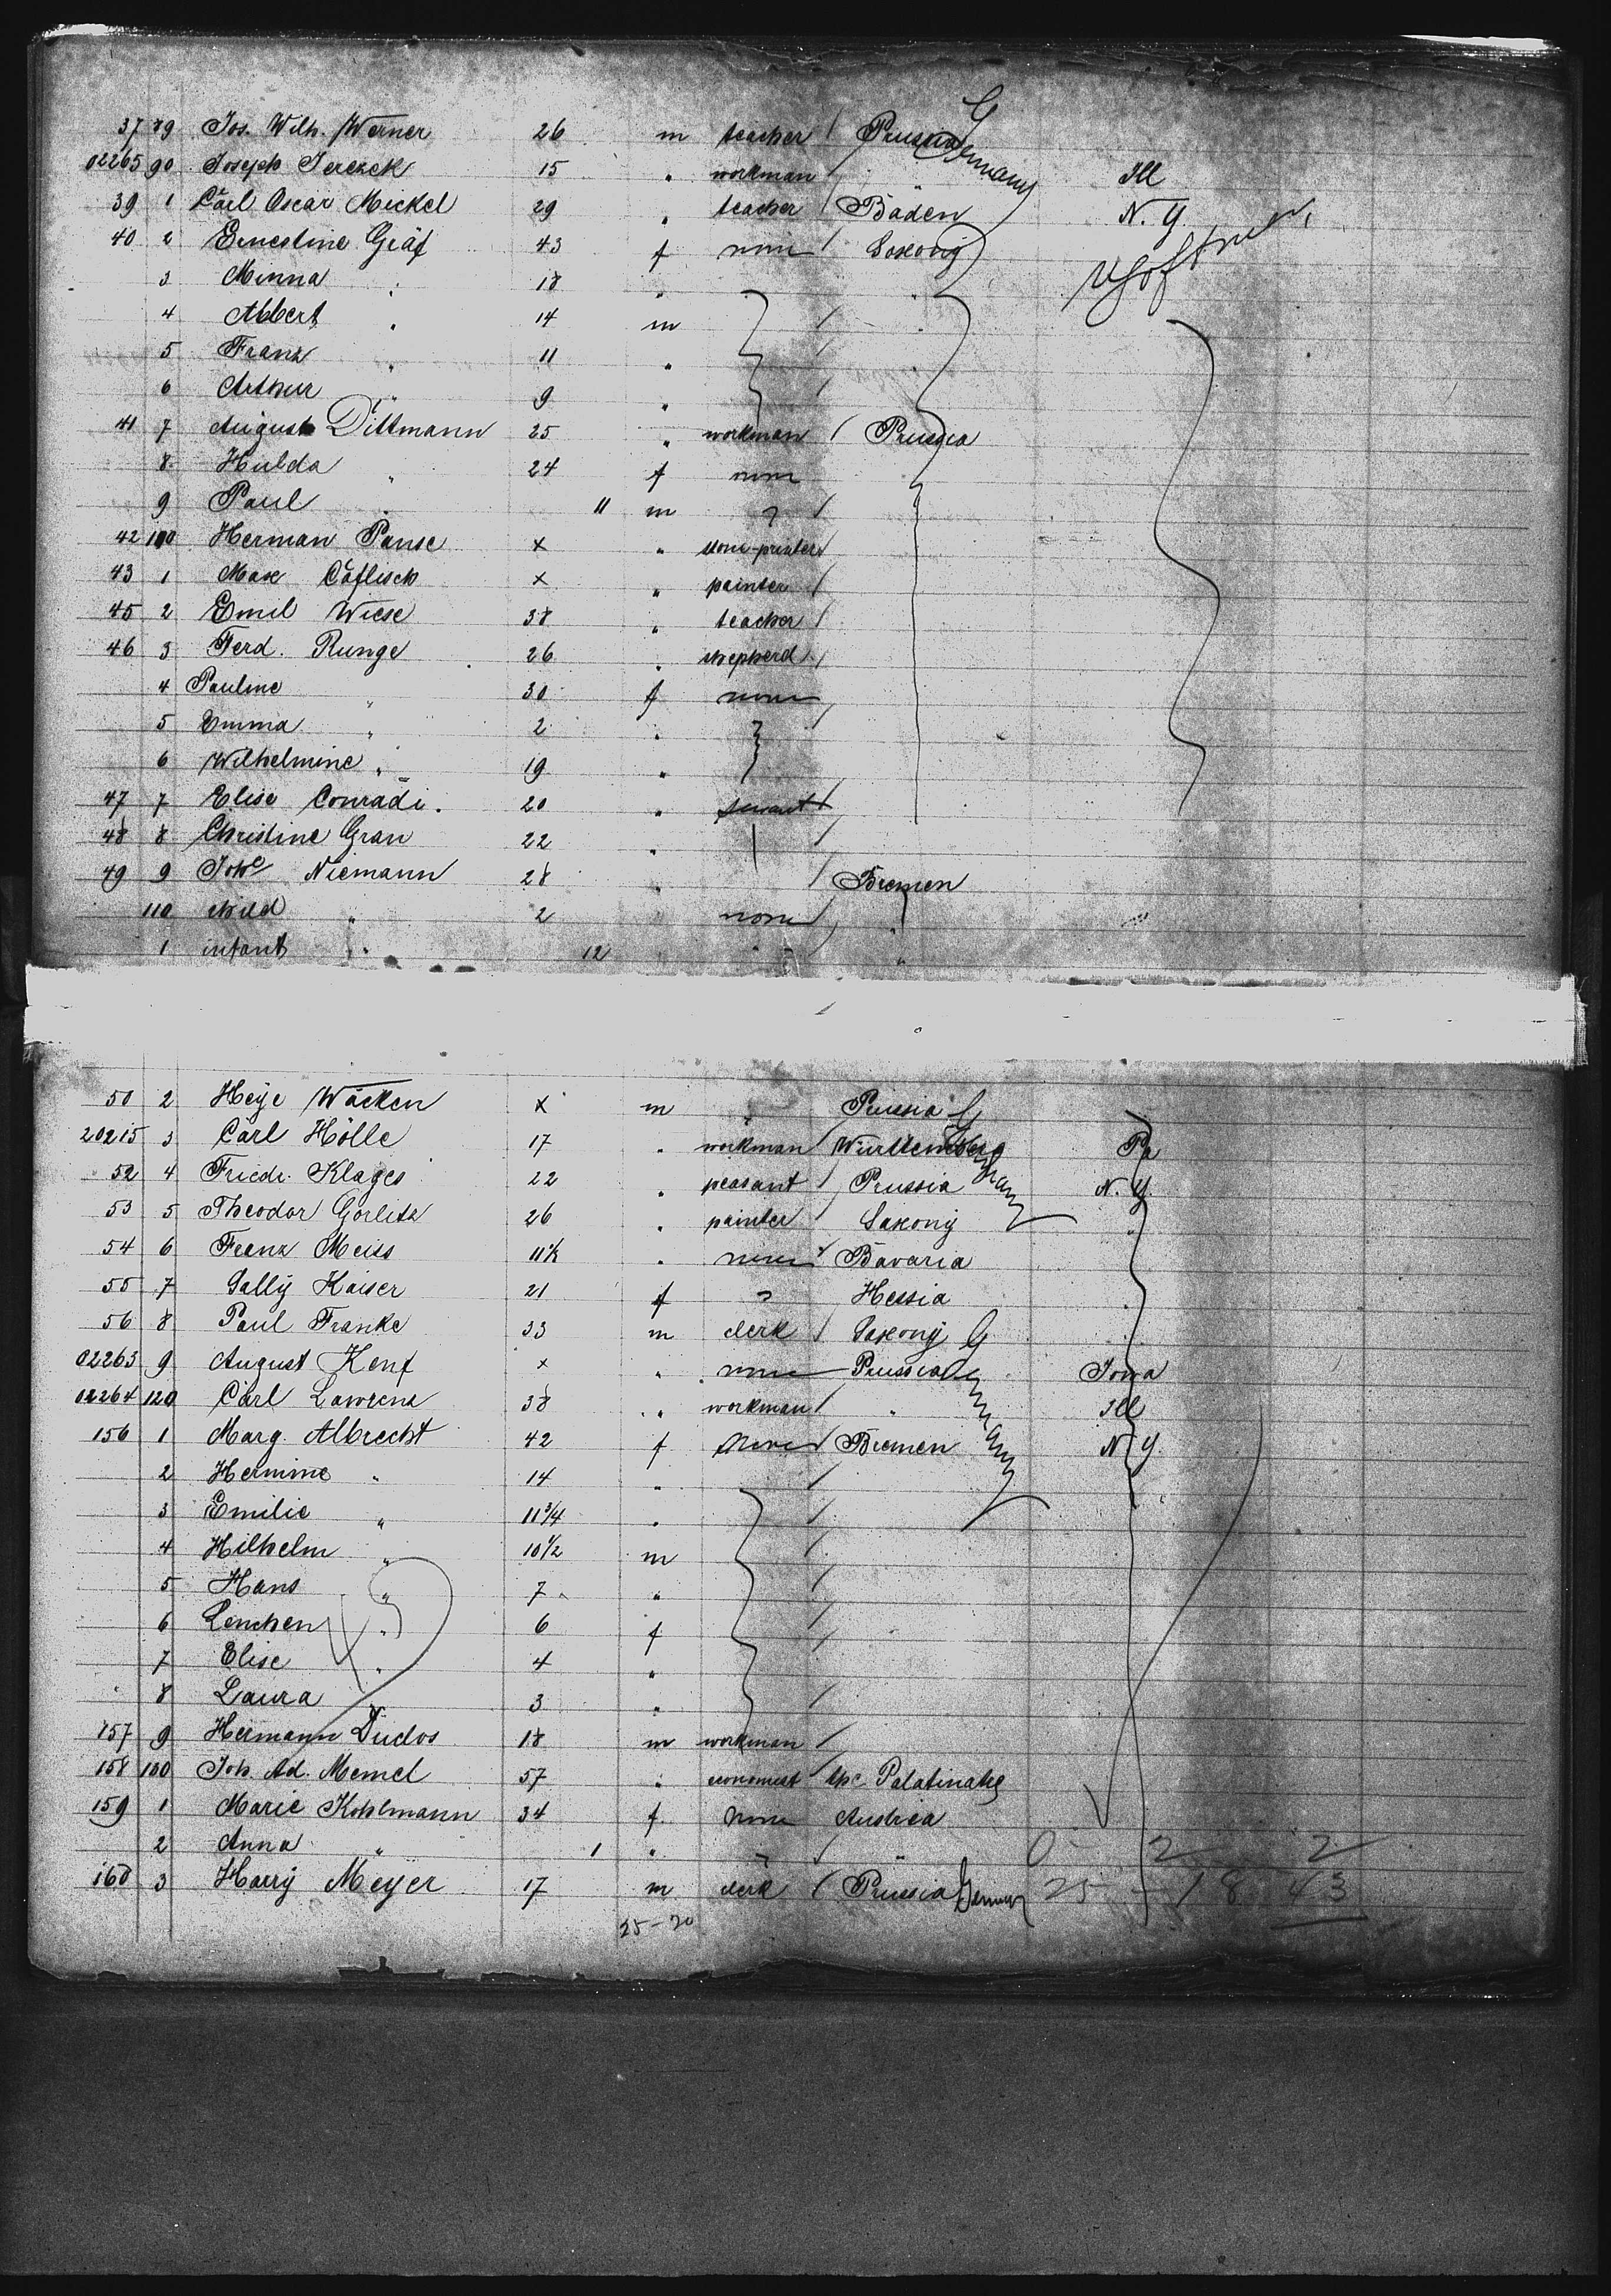 37 89 Jos. Wilh. Werner 26 m teacher / Prussia Germany
02265 90 Joseph Jerczek 15 " workman / " Ill
39 1 Carl Oscar Mickel 29 " teacher / Baden N.Y.
40 2 Ernestine Gräf 43 f none / Saxony
3 Minna " 18 "
4 Albert " 14 m /
5 Franz " 11 " /
6 Arthur " 9 " /
41 7 August Dittmann 25 " workman / Prussia
8 Hulda " 24 f none
9 Paul " 11 m " /
42 100 Herman Panse x " stone-printer
43 1 Max Caflisch x " painter /
45 2 Emil Wiese 38 " teacher /
46 3 Ferd. Runge 26 " shepherd /
4 Pauline " 30 f none
5 Emma " 2 " /
6 Wilhelmine " 19 "
47 7 Elise Conradi. 20 " servant /
48 8 Christine Gran 22 " /
49 9 Johe Niemann 28 " / Bremen
110 child " 2 " none / "
1 infant " 12 " " "
50 2 Heye Wäcken x m " Prussia G
20215 3 Carl Hölle 17 " workman / Württemberg Pa
52 4 Friedr. Klages 22 " peasant / Prussia N.Y.
53 5 Theodor Görlitz 26 " painter / Saxony "
54 6 Franz Meiss 11½ " none / Bavaria
55 7 Sally Kaiser 21 f " Hessia "
56 8 Paul Franke 33 m clerk / Saxony G "
02263 9 August Kenf x " none Prussia Germany Iowa
02264 120 Carl Lawrenz 38 " workman / " Ill
156 1 Marg. Albrecht 42 f none / Bremen N.Y.
2 Hermine " 14 " /
3 Emilie " 11¾ " /
4 Hilhelm " 10½ m /
5 Hans " 7 " /
6 Lenchen " 6 f /
7 Elise " 4 " /
8 Laura " 3 " /
157 9 Hermann Duclos 18 m workman /
158 130 Joh. Ad. Memel 57 " economist / the Palatinate
159 1 Marie Kohlmann 34 f none Austria
2 Anna " 1 " " / " 0 2 2
160 3 Harry Meyer 17 m clerk / Prussia Germany 25 - 18 43
25-20